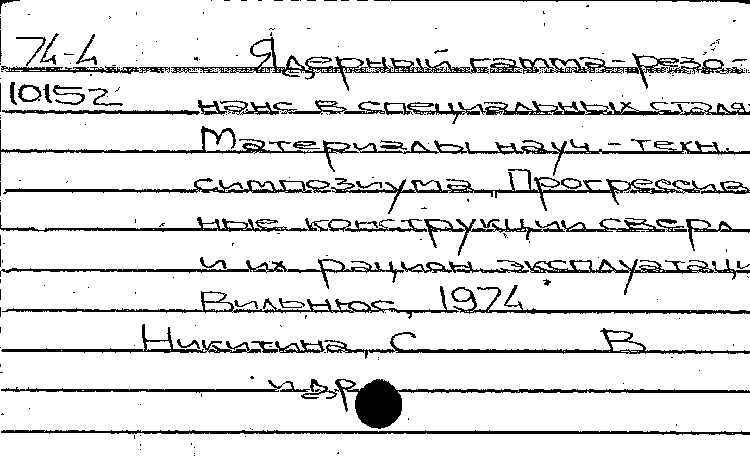 74-4 Ядерный гамма-резо-
10152 нанс в специальных сталях
Материалы науч.-техн.
симпозиума „Прогрессив
ные конструкции сверл
и их рацион. эксплуатаци
Вильнюс, 1974.
Никитина, С В
и др